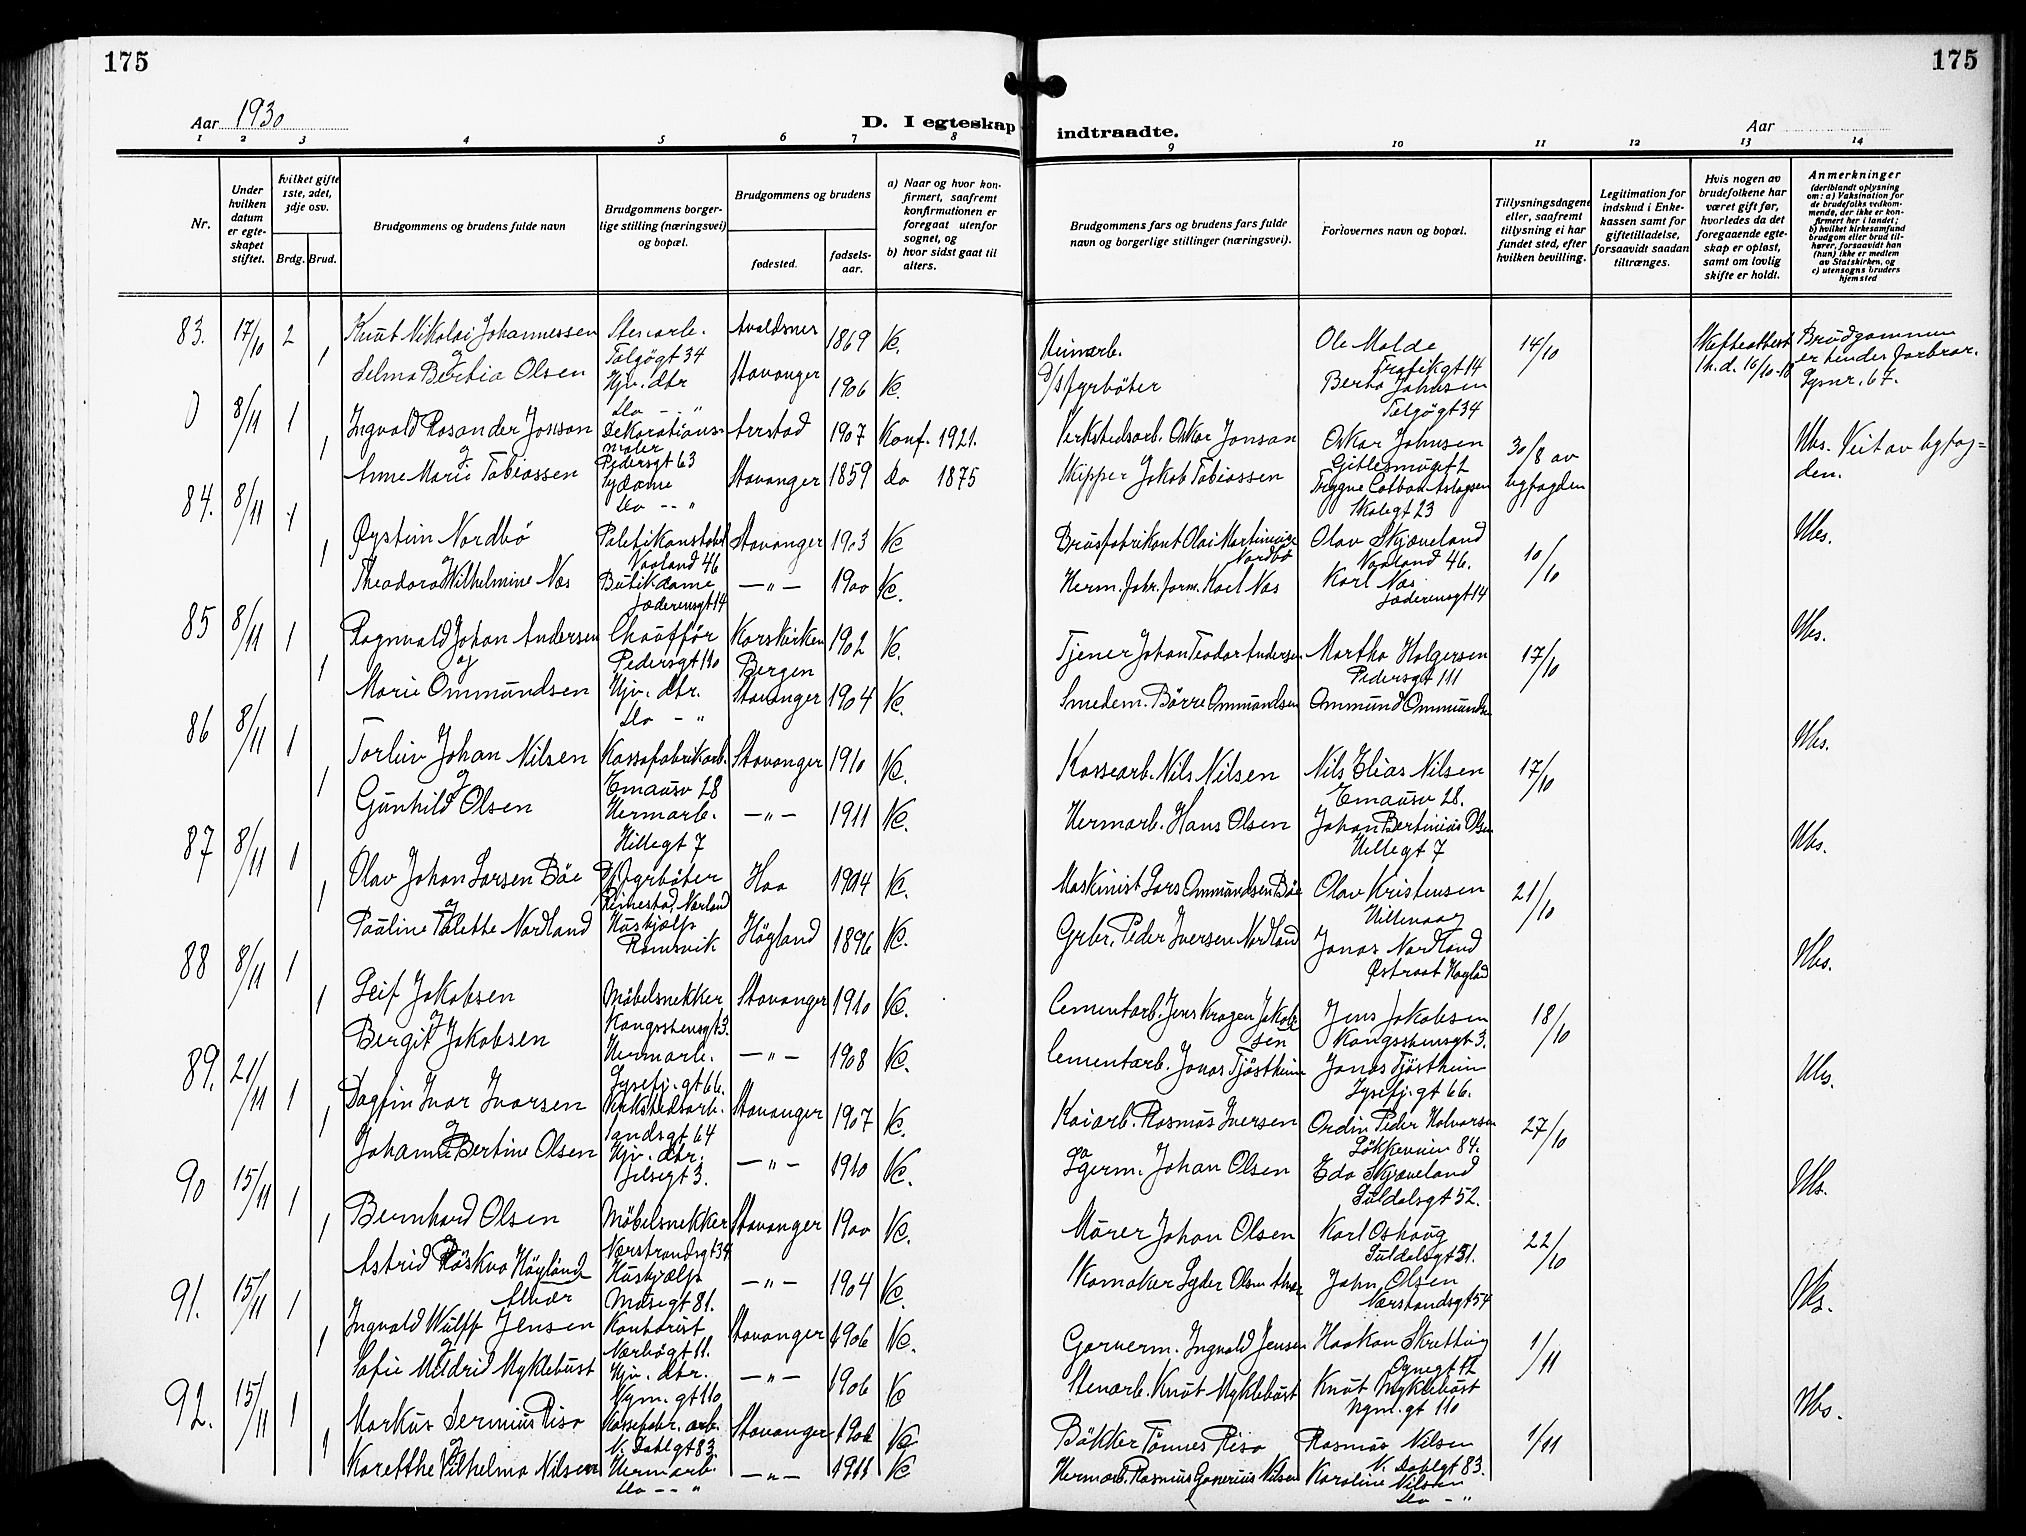 175
175
Aar 1930
D. I egteskap indtraadte.
Aar
1 2 3 4 5 6 7 8 9 10 11 12 13 14
Nr.
Under hvilken datum er egteskapet stiftet.
hvilket gifte 1ste, 2det, 3dje osv.
Brdg. Brud.
Brudgommens og brudens fulde navn
Brudgommens borgerlige stilling (næringsvei) og bopæl.
Brudgommens og brudens
fødested.
fødselsaar.
a) Naar og hvor konfirmert, saafremt konfirmationen er foregaat utenfor sognet, og
b) hvor sidst gaat til alters.
Brudgommens fars og brudens fars fulde navn og borgerlige stillinger (næringsvei).
Forlovernes navn og bopæl.
Tillysningsdagene eller, saafremt tillysning ei har fundet sted, efter hvilken bevilling.
Legitimation for indskud i Enkekassen samt for giftetilladelse, forsaavidt saadan tiltrænges.
Hvis nogen av brudefolkene har været gift før, hvorledes da det foregaaende egteskap er opløst, samt om lovlig skifte er holdt.
Anmerkninger
(deriblandt oplysning om: a) Vaksination for de brudefolks vedkommende, der ikke er konfirmert her i landet; b) hvilket kirkesamfund brudgom eller brud tilhører, forsaavidt han (hun) ikke er medlem av Statskirken, og c) utensogns bruders hjemsted
83. 17/10 2 Knut Nikolai Johannessen Stenarb. Avaldsner 1869 Ole Molde 14/10 Skifteattest Brudgommen
og 1 Talgøgt 34 Trafikgt 14 er hendes farbror.
Selma Bertia Olsen Hjv. dtr Stavanger 1906 fyrbøter Berta Johnsen Lysnr. 67.
do - " Talgøgt 34
8/11 1 Ingvald Rosander Jonson Dekorationsmaler Aarstad 1907 Konf. 1921. Verkstedsarb. Oskar Jonson Oskar Johnsen 30/8 av
og 1 Pedersgt 63
Anne Marie Tobiassen Sydame Stavanger 1859 do 1875 Skipper Jakob Tobiassen byfogden
do - " Skolegt 23
84. 8/11 1 Øystein Nordbø Politikonstabel Stavanger 1903 Brusfabrikant Olai Martinius Nordbø Olav Skjæveland 10/10
og 1 Vaaland 46 Vaaland 46.
Theodora Wilhelmine Næs Butikdame - " - 1900 Karl Næs
Jæderensgt 14 Jæderensgt 14
85 8/11 1 Ragnvald Johan Andersen Chauffør Korskirken 1902 Tjener Johan Teodor Andersen Martha Holgersen 17/10
og 1 Pedersgt 110 Bergen Pedersgt 111
Marie Ommundsen Hjv. dtr. Stavanger 1904 Smedem. Børre Ommundsen Ommund Ommundsen
do - "
86 8/11 1 Torleiv Johan Nilsen Kassafabrikarb. Stavanger 1910 Kassearb. Nils Nilsen Nils Elias Nilsen 17/10
og 1 Emausv 28 Emausv 28.
Gunhild Olsen Hermarb. - " - 1911 Hermarb. Hans Olsen Johan Bertinius Olsen
Hillegt 7 Hillegt 7
87 8/11 1 Olav Johan Larsen Bøe Fyrbøter Haa 1904 Maskinist Lars Ommundsen Bøe Olav Kristensen 21/10
og 1 Rimestad, Nærland Hillevaag
Pauline Talette Nordland Hushjælp Høyland 1896 Grbr. Peder Iversen Nordland Jonas Nordland
Ramsvik Østraat Høyland
88 8/11 1 Leif Jakobsen Møbelsnekker Stavanger 1910 Cementarb. Jens Kragen Jakobsen Jens Jakobsen 18/10
og 1 Kongsstensgt 3. Kongsstensgt 3.
Bergit Jakobsen Hermarb. - " - 1908 Cementarb. Jonas Tjøstheim Jonas Tjøstheim
Lysefj. gt 66. Lysefj. gt 66.
89. 21/11 1 Dagfin Ivar Ivarsen Verkstedsarb. Stavanger 1907 Kaiarb. Rasmus Iversen Ordin Peder Halvorsen 27/10
og 1 Sandsgt 64 Løkkeveien 84.
Johanne Bertine Olsen Hjv. dtr. - " - 1910 Johan Olsen Eda Skjæveland
Jelsegt 3. Suldalsgt 52.
90 15/11 1 Bernhard Olsen Møbelsnekker Stavanger 1900 Murer Johan Olsen Karl Oshaug 22/10
og 1 Nærstrandsgt 34 Suldalsgt 31.
Astrid Røskva Høyland Alvær Hushjælp - " - 1904 Skomaker John Olsen
Musegt 81. Nærstrandsgt 54
91. 15/11 1 Ingvald Wulff Jensen Kontorist Stavanger 1906 Garverm. Ingvald Jensen Haakon Skretting 1/11
og 1 Nærbøgt 11. Ognegt 12
Sofie Mildrid Myklebust Hjv. dtr. - " - 1906 Stenarb. Knut Myklebust Knut Myklebust
Nym. gt 110 Nym. gt 110
92. 15/11 1 Markus Serenius Risa Kassefabr. arb. Stavanger 1906 Bøkker Tønnes Risa Rasmus Nilsen 1/11
og 1 V. Dahlgt 83 V. Dahlgt 83.
Karetthe Vilhelma Nilsen Hermarb. - " - 1911 Karoline Nilsen
do - " do - "